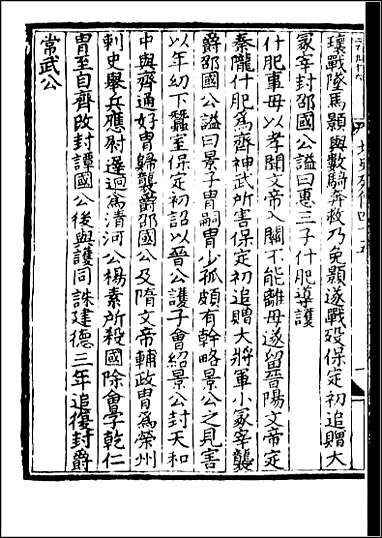 瓌戰墜馬顥與數騎奔救乃免顥遂戰歿保定初追贈大
冢宰封邵國公謚曰惠三子什肥導護
什肥事母以孝聞文帝入關不能離母遂留晉陽文帝定
秦隴什肥爲齊神武所害保定初追贈大將軍小冢宰襲
爵邵國公謚曰景子胄嗣胄少孤頗有幹略景公之見害
以年幼下蠶室保定初詔以晉公護子會紹景公封天和
中與齊通好胄歸襲爵邵國公及隋文帝輔政胄爲榮州
刺史舉兵應尉遲迥爲清河公楊素所殺國除會學乾仁
胄至自齊改封譚國公後與護同誅建德三年追復封爵
常武公